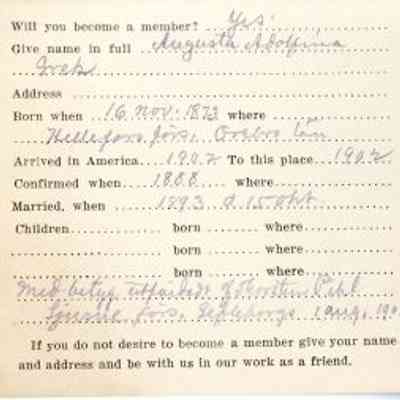 Will you become a member? Yes
Give name in full Augusta Adolfina
Address
Born when 16 Nov. 1873 where
Hellefors förs. Örebro län
Arrived in America 1902 To this place 1902
Confirmed when 1888 where
Married, when 1893 d. 15 Okt
Children born where
born where
born where
Med betyg af
förs. Gefleborgs 1 aug. 190
If you do not desire to become a member give your name
and address and be with us in our work as a friend.